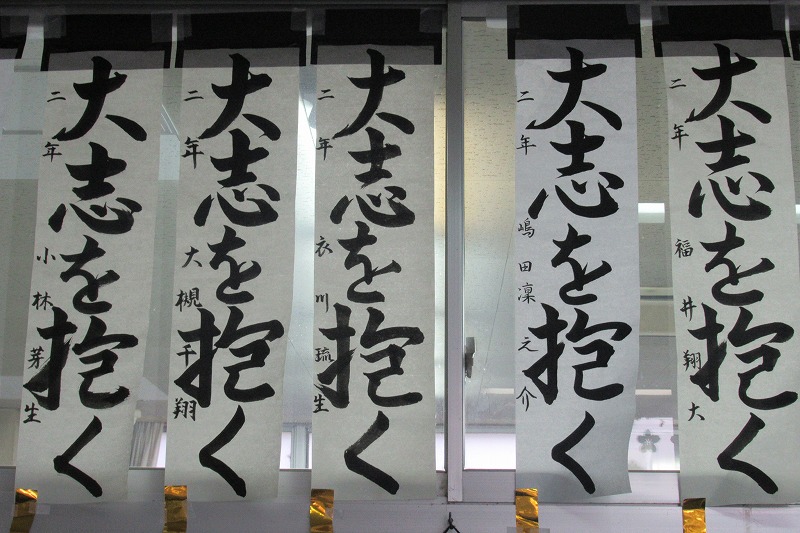 大志を抱く
二年 福井翔大
大志を抱く
二年 嶋田凜之介
大志を抱く
二年 衣川琉生
大志を抱く
二年 大槻千翔
大志を抱く
二年 小林芽生